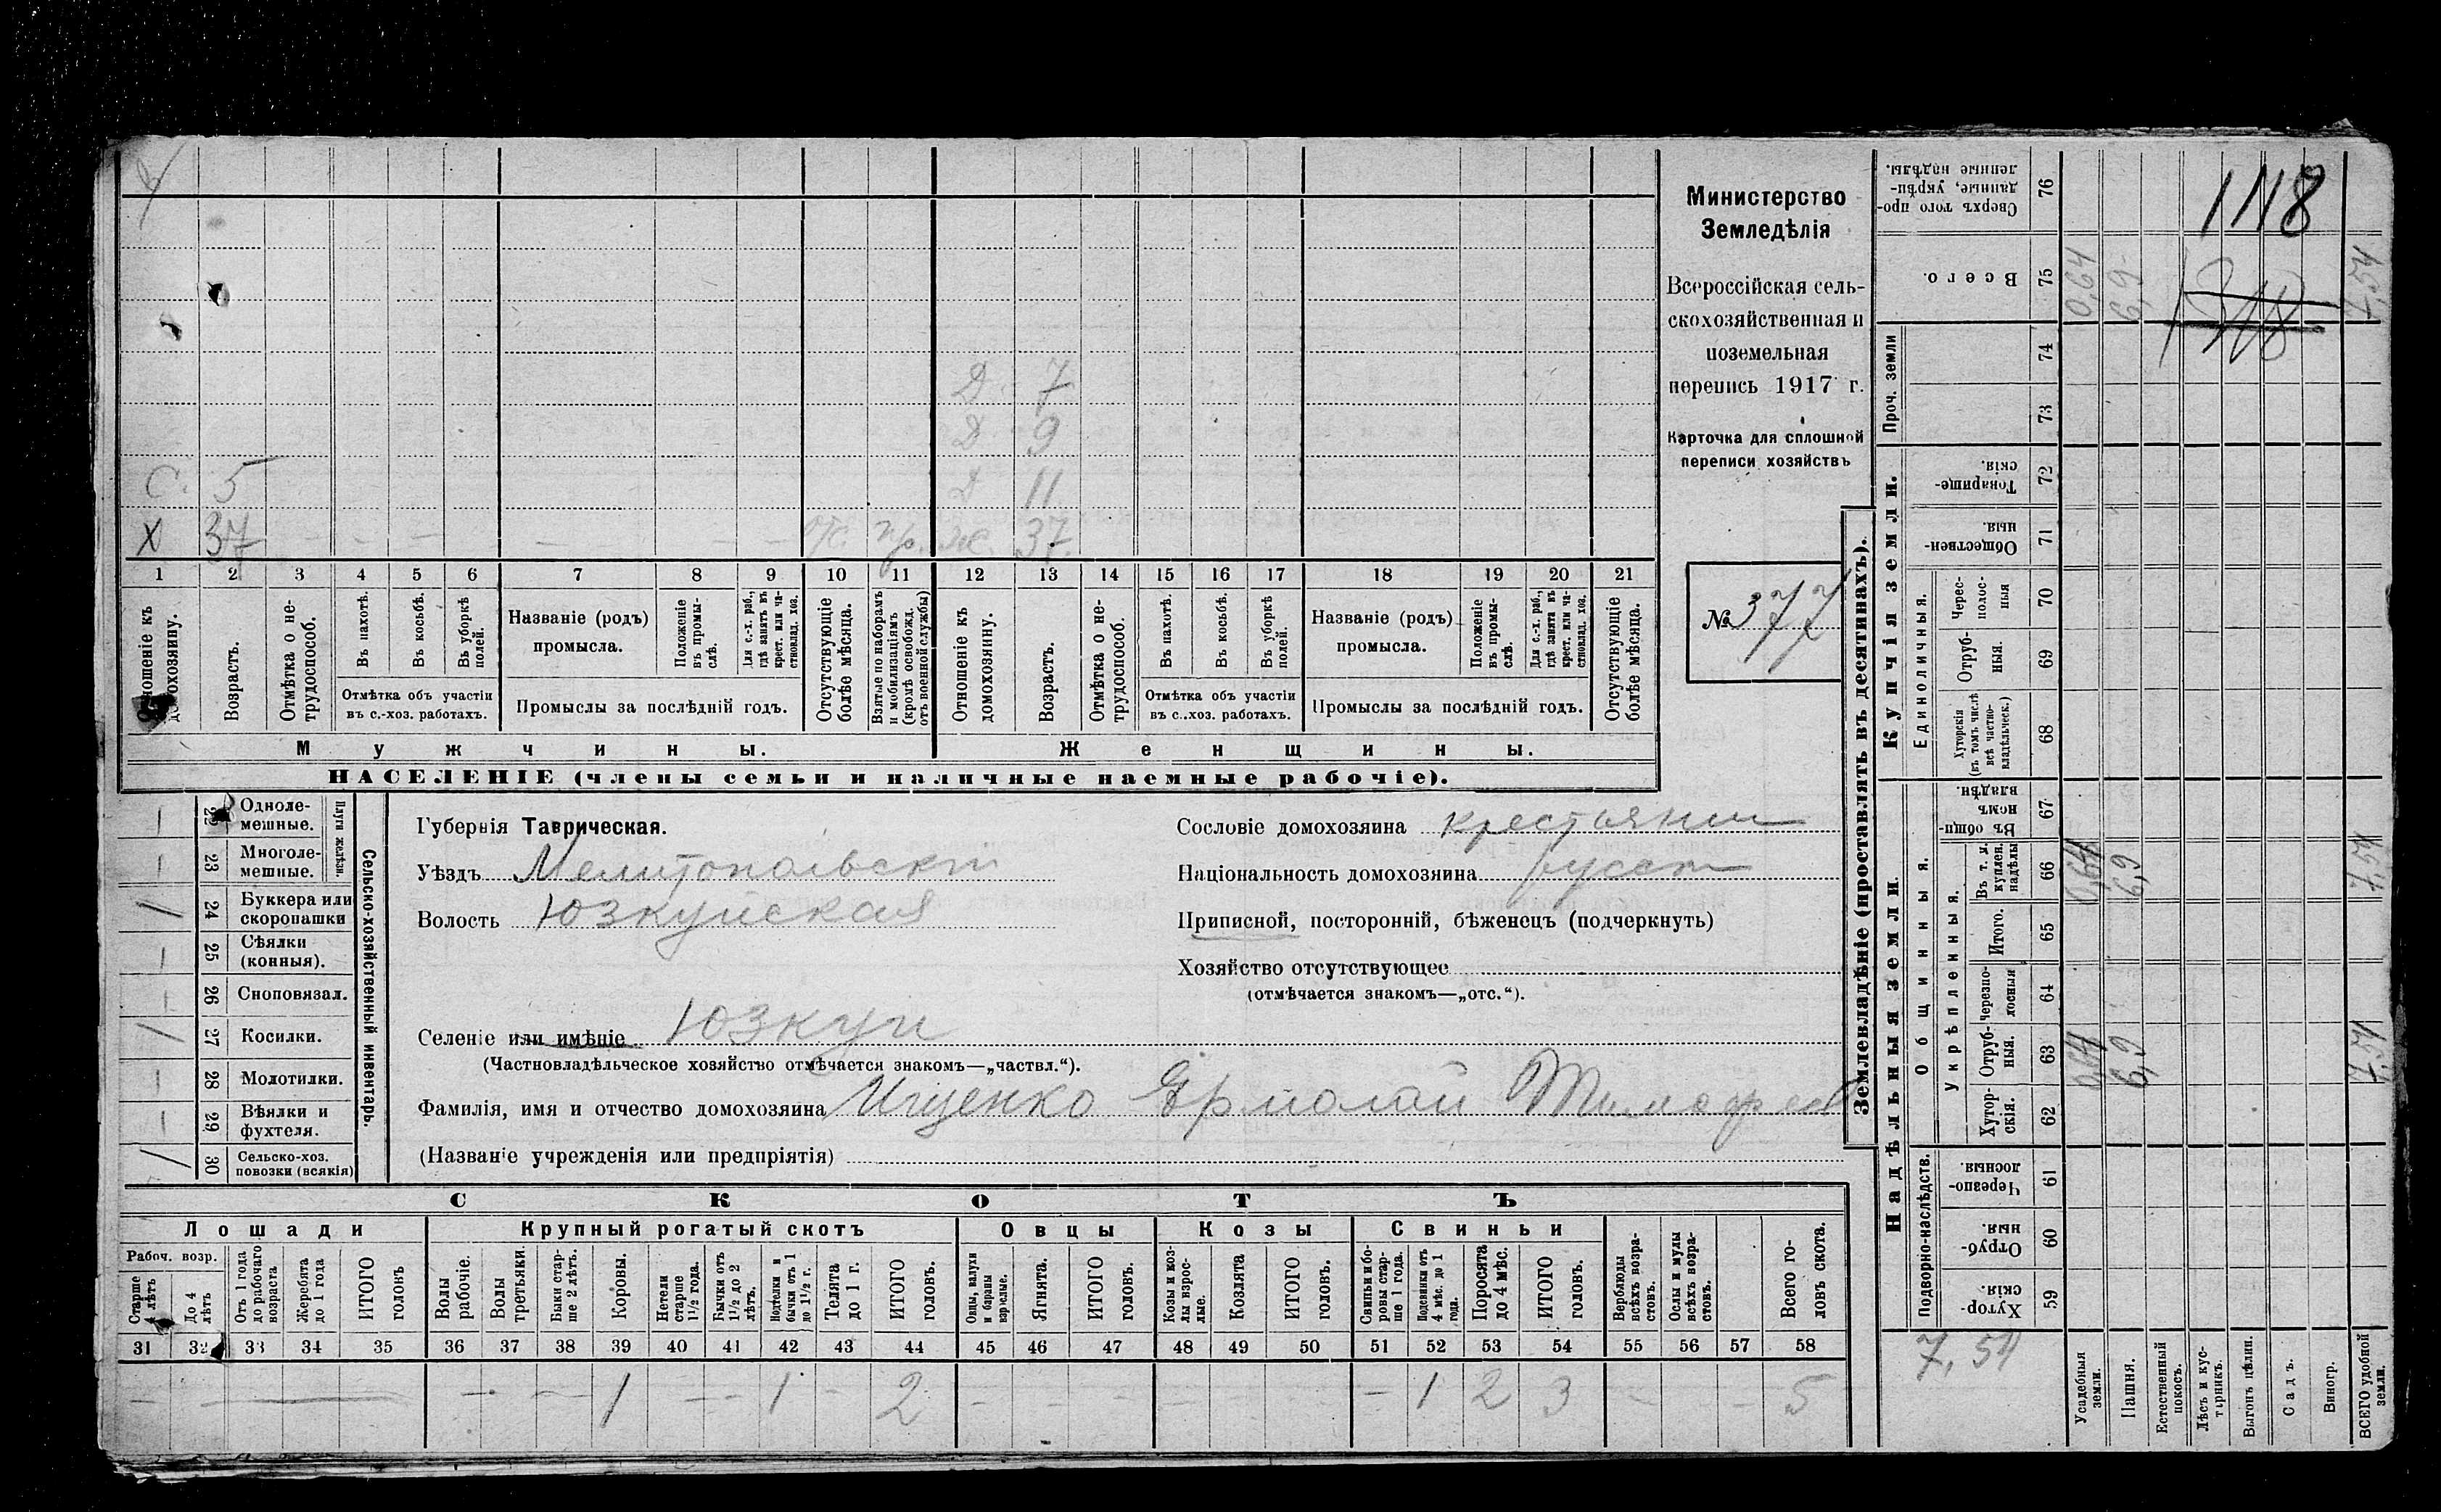 1118
Министерство
Земледѣлія
Всероссійская сель-
скохозяйственная и
поземельная
перепись 1917 г.
Карточка для сплошной
переписи хозяйствъ
№ 377
Д. 7
Д. 9
С. 5 Д 11
X 37 — — — — — — — отс. пр. ж. 37.
1 2 3 4 5 6 7 8 9 10 11 12 13 14 15 16 17 18 19 20 21
Отношеніе къ домохозяину.
Возрастъ.
Отмѣтка о не-трудоспособ.
Въ пахотѣ.
Въ косьбѣ.
Въ уборкѣ полей.
Отмѣтка объ участіи
въ с.-хоз. работахъ.
Названіе (родъ)
промысла.
Положеніе въ промы-слѣ.
Для с.-х. раб., гдѣ занятъ въ крест. или ча-стновлад. хоз.
Промыслы за послѣдній годъ.
Отсутствующіе болѣе мѣсяца.
Взятые по наборамъ и мобилизаціямъ (кромѣ освобожд. отъ военной службы)
Отношеніе къ домохозяину.
Возрастъ.
Отмѣтка о не-трудоспособ.
Въ пахотѣ.
Въ косьбѣ.
Въ уборкѣ полей.
Отмѣтка объ участіи
въ с.-хоз. работахъ.
Названіе (родъ)
промысла.
Положеніе въ промы-слѣ.
Для с.-х. раб., гдѣ занята въ крест. или ча-стновлад. хоз.
Промыслы за послѣдній годъ.
Отсутствующіе болѣе мѣсяца.
Мужчины. Женщины.
НАСЕЛЕНІЕ (члены семьи и наличные наемные рабочіе).
1 22 Одноле-мешные.
1 23 Многоле-мешные.
Плуги желѣзн.
/ 24 Буккера или скоропашки
1 25 Сѣялки (конныя).
1 26 Сноповязал.
/ 27 Косилки.
1 28 Молотилки.
1 29 Вѣялки и фухтеля.
/ 30 Сельско-хоз. повозки (всякія)
Сельско-хозяйственный инвентарь.
Губернія Таврическая.
Уѣздъ Мелитопольскій
Волость Юзкуйская
Сословіе домохозяина крестьянин
Національность домохозяина русск
Приписной, посторонній, бѣженецъ (подчеркнуть)
Хозяйство отсутствующее
(отмѣчается знакомъ—„отс.“).
Селеніе или имѣніе Юзкуи
(Частновладѣльческое хозяйство отмѣчается знакомъ—„частвл.“).
Фамилія, имя и отчество домохозяина Ищенко Ярмолай Тимофеев
(Названіе учрежденія или предпріятія)
СКОТЪ
Лошади Крупный рогатый скотъ Овцы Козы Свиньи
Рабоч. возр.
Старше 4 лѣтъ
До 4 лѣтъ
Отъ 1 года до рабочаго возраста
Жеребята до 1 года
ИТОГО головъ
Волы рабочіе.
Волы третьяки.
Быки стар-ше 2 лѣтъ.
Коровы.
Нетели старше 1½ года.
Бычки отъ 1½ до 2 лѣтъ.
Подтелки и бычки отъ 1 до 1½ г.
Телята до 1 г.
ИТОГО головъ.
Овцы, валухи и бараны взрослые.
Ягнята.
ИТОГО головъ.
Козы и коз-лы взрос-лые.
Козлята
ИТОГО головъ.
Свиньи и бо-ровы стар-ше 1 года.
Подсвинки отъ 4 мѣс. до 1 года.
Поросята до 4 мѣс.
ИТОГО головъ.
Верблюды всѣхъ возра-стовъ.
Ослы и мулы всѣхъ возра-стовъ.
Всего го-ловъ скота.
31 32 33 34 35 36 37 38 39 40 41 42 43 44 45 46 47 48 49 50 51 52 53 54 55 56 57 58
— — — — — 1 — — 1 — 2 — — — — — — — 1 2 3 — — — 5
Землевладѣніе (проставлять въ десятинахъ).
Купчія земли.
Надѣльныя земли
76 Сверхъ того про-данные, укрѣп-ленные надѣлы.
75 Всего. 0,64 6,9 7,54
Проч. земли
74
73
72 Товарище-скія.
71 Обществен-ныя.
Единоличныя.
70 Черес-полос-ныя
69 Отруб-ныя.
68 Хуторскія (въ томъ числѣ всѣ частно-владѣльческ.)
Общинныя.
67 Въ общи-номъ владѣн.
66 Въ т. ч. куплен. надѣлы 0,64 6,9 7,54
Укрѣпленныя.
65 Итого.
64 Черезпо-лосныя
63 Отруб-ныя. 0,64 6,9 7,54
62 Хутор-скія.
Подворно-наслѣдств.
61 Черезпо-лосныя.
60 Отруб-ныя.
59 Хутор-скія.
7,54
Усадебныя земли.
Пашня.
Естественный покосъ.
Лѣсъ и кус-тарникъ.
Выгонъ цѣлин.
Садъ.
Виногр.
ВСЕГО удобной земли.